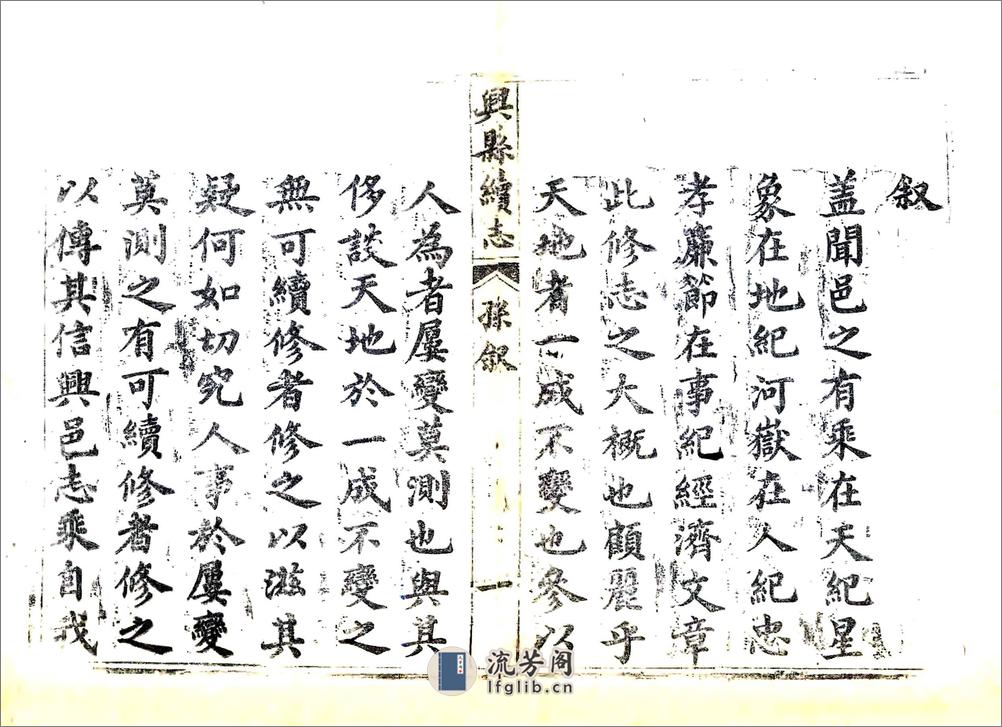 叙
盖聞邑之有乘在天紀星
象在地紀河嶽在人紀忠
孝薕節在事紀經濟文章
此修志之大概也顧麗乎
天地者一成不變也參以
興縣續志 孫叙 一
人為者屢變莫測也與其
侈談天地於一成不變之
無可續修者修之以滋其
疑何如切究人事於屢變
莫測之有可續修者修之
以傳其信興邑志乘自我
流芳阁
lfglib.cn